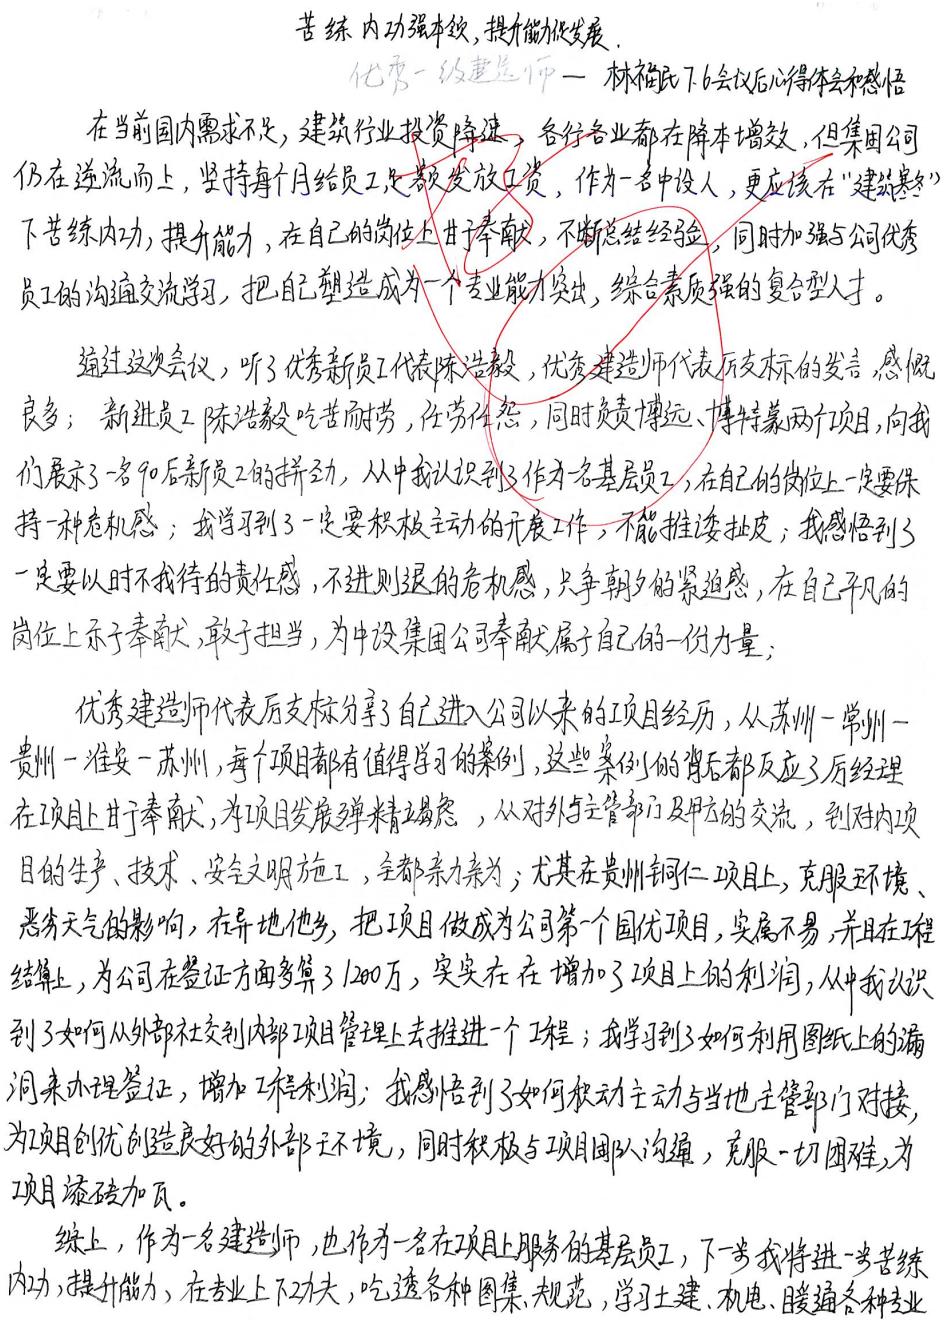 苦练内功强本领,提升能力促发展.
优秀一级建造师— 林福民7.6会议后心得体会和感悟
在当前国内需求不足,建筑行业投资降速,各行各业都在降本增效,但集团公司
仍在逆流而上,坚持每个月给员工足额发放工资,作为一名中设人,更应该在“建筑寒冬”
下苦练内功,提升能力,在自己的岗位上甘于奉献,不断总结经验,同时加强与公司优秀
员工的沟通交流学习,把自己塑造成为一个专业能力突出,综合素质强的复合型人才。
通过这次会议,听了优秀新员工代表陈浩毅,优秀建造师代表厉支标的发言,感慨
良多;新进员工陈浩毅吃苦而耐劳,任劳任怨,同时负责博远、博特蒙两个项目,向我
们展示了一名90后新员工的拼劲,从中我认识到了作为一名基层员工,在自己的岗位上一定要保
持一种危机感;我学习到了一定要积极主动的开展工作,不能推诿扯皮;我感悟到了
一定要以时不我待的责任感,不进则退的危机感,只争朝夕的紧迫感,在自己平凡的
岗位上乐于奉献,敢于担当,为中设集团公司奉献属于自己的一份力量;
优秀建造师代表厉支标分享了自己进入公司以来的工项目经历,从苏州一常州一
贵州一淮安一苏州,每个项目都有值得学习的案例,这些案例的背后都反应了厉经理
在项目上甘于奉献,为项目发展殚精竭虑,从对外与主管部门及甲方的交流,到对内项
目的生产、技术、安全文明施工,全都亲力亲为;尤其在贵州铜仁项目上,克服环境、
恶劣天气的影响,在异地他乡,把项目做成为公司第一个国优项目,实属不易,并且在工程
结算上,为公司在签证方面多算了1200万,实实在在增加了项目上的利润,从中我认识
到了如何从外部社交到内部项目管理上去推进一个工程;我学习到了如何利用图纸上的漏
洞来办理签证,增加工程利润;我感悟到了如何积动主动与当地主管部门对接,
为项目创优创造良好的外部环境,同时积极与项目团队沟通,克服一切困难,为
项目添砖加瓦。
综上,作为一名建造师,也作为一名在项目上服务的基层员工,下一步我将进一步苦练
内功,提升能力,在专业上下功夫,吃透各种图集、规范,学习土建、机电、暖通各种专业